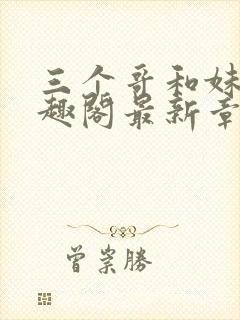 三个哥和妹
趣阁最新章
曾崇勝